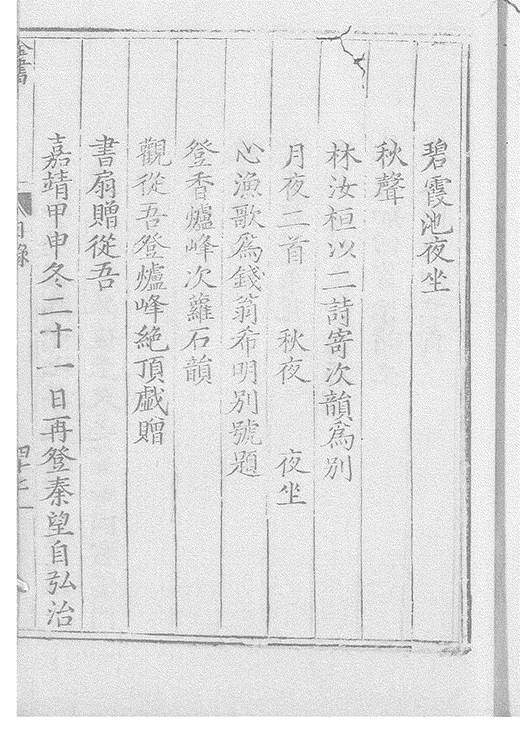 碧霞池夜坐
秋聲
林汝桓以二詩寄次韻爲別
月夜二首 秋夜 夜坐
心漁歌爲錢翁希明別號題
登香爐峰次蘿石韻
觀從吾登爐峰絶頂戲贈
書扇贈從吾
嘉靖甲申冬二十一日再登秦望自弘治
全書 目錄